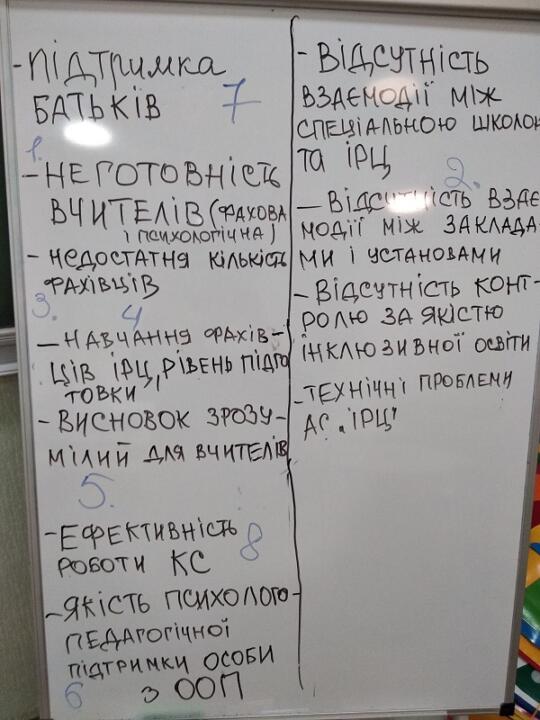 - ПІДТРИМКА
БАТЬКІВ 7
1.
- НЕГОТОВНІСТЬ
ВЧИТЕЛІВ (ФАХОВА
І ПСИХОЛОГІЧНА)
- НЕДОСТАТНЯ КІЛЬКІСТЬ
ФАХІВЦІВ
3. 4
- НАВЧАННЯ ФАХІВ-
ЦІВ ІРЦ, РІВЕНЬ ПІДГО
ТОВКИ
- ВИСНОВОК ЗРОЗУ-
МІЛИЙ ДЛЯ ВЧИТЕЛІВ
5.
- ЕФЕКТИВНІСТЬ
РОБОТИ КС 8
- ЯКІСТЬ ПСИХОЛОГО-
ПЕДАГОГІЧНОЇ
ПІДТРИМКИ ОСОБИ
6 З ООП
- ВІДСУТНІСТЬ
ВЗАЄМОДІЇ МІЖ
СПЕЦІАЛЬНОЮ ШКОЛОЮ
ТА ІРЦ
2.
- ВІДСУТНІСТЬ ВЗАЄ
МОДІЇ МІЖ ЗАКЛАДА-
МИ І УСТАНОВАМИ
- ВІДСУТНІСТЬ КОНТ-
РОЛЮ ЗА ЯКІСТЮ
ІНКЛЮЗИВНОЇ ОСВІТИ
- ТЕХНІЧНІ ПРОБЛЕМИ
АС „ІРЦ"